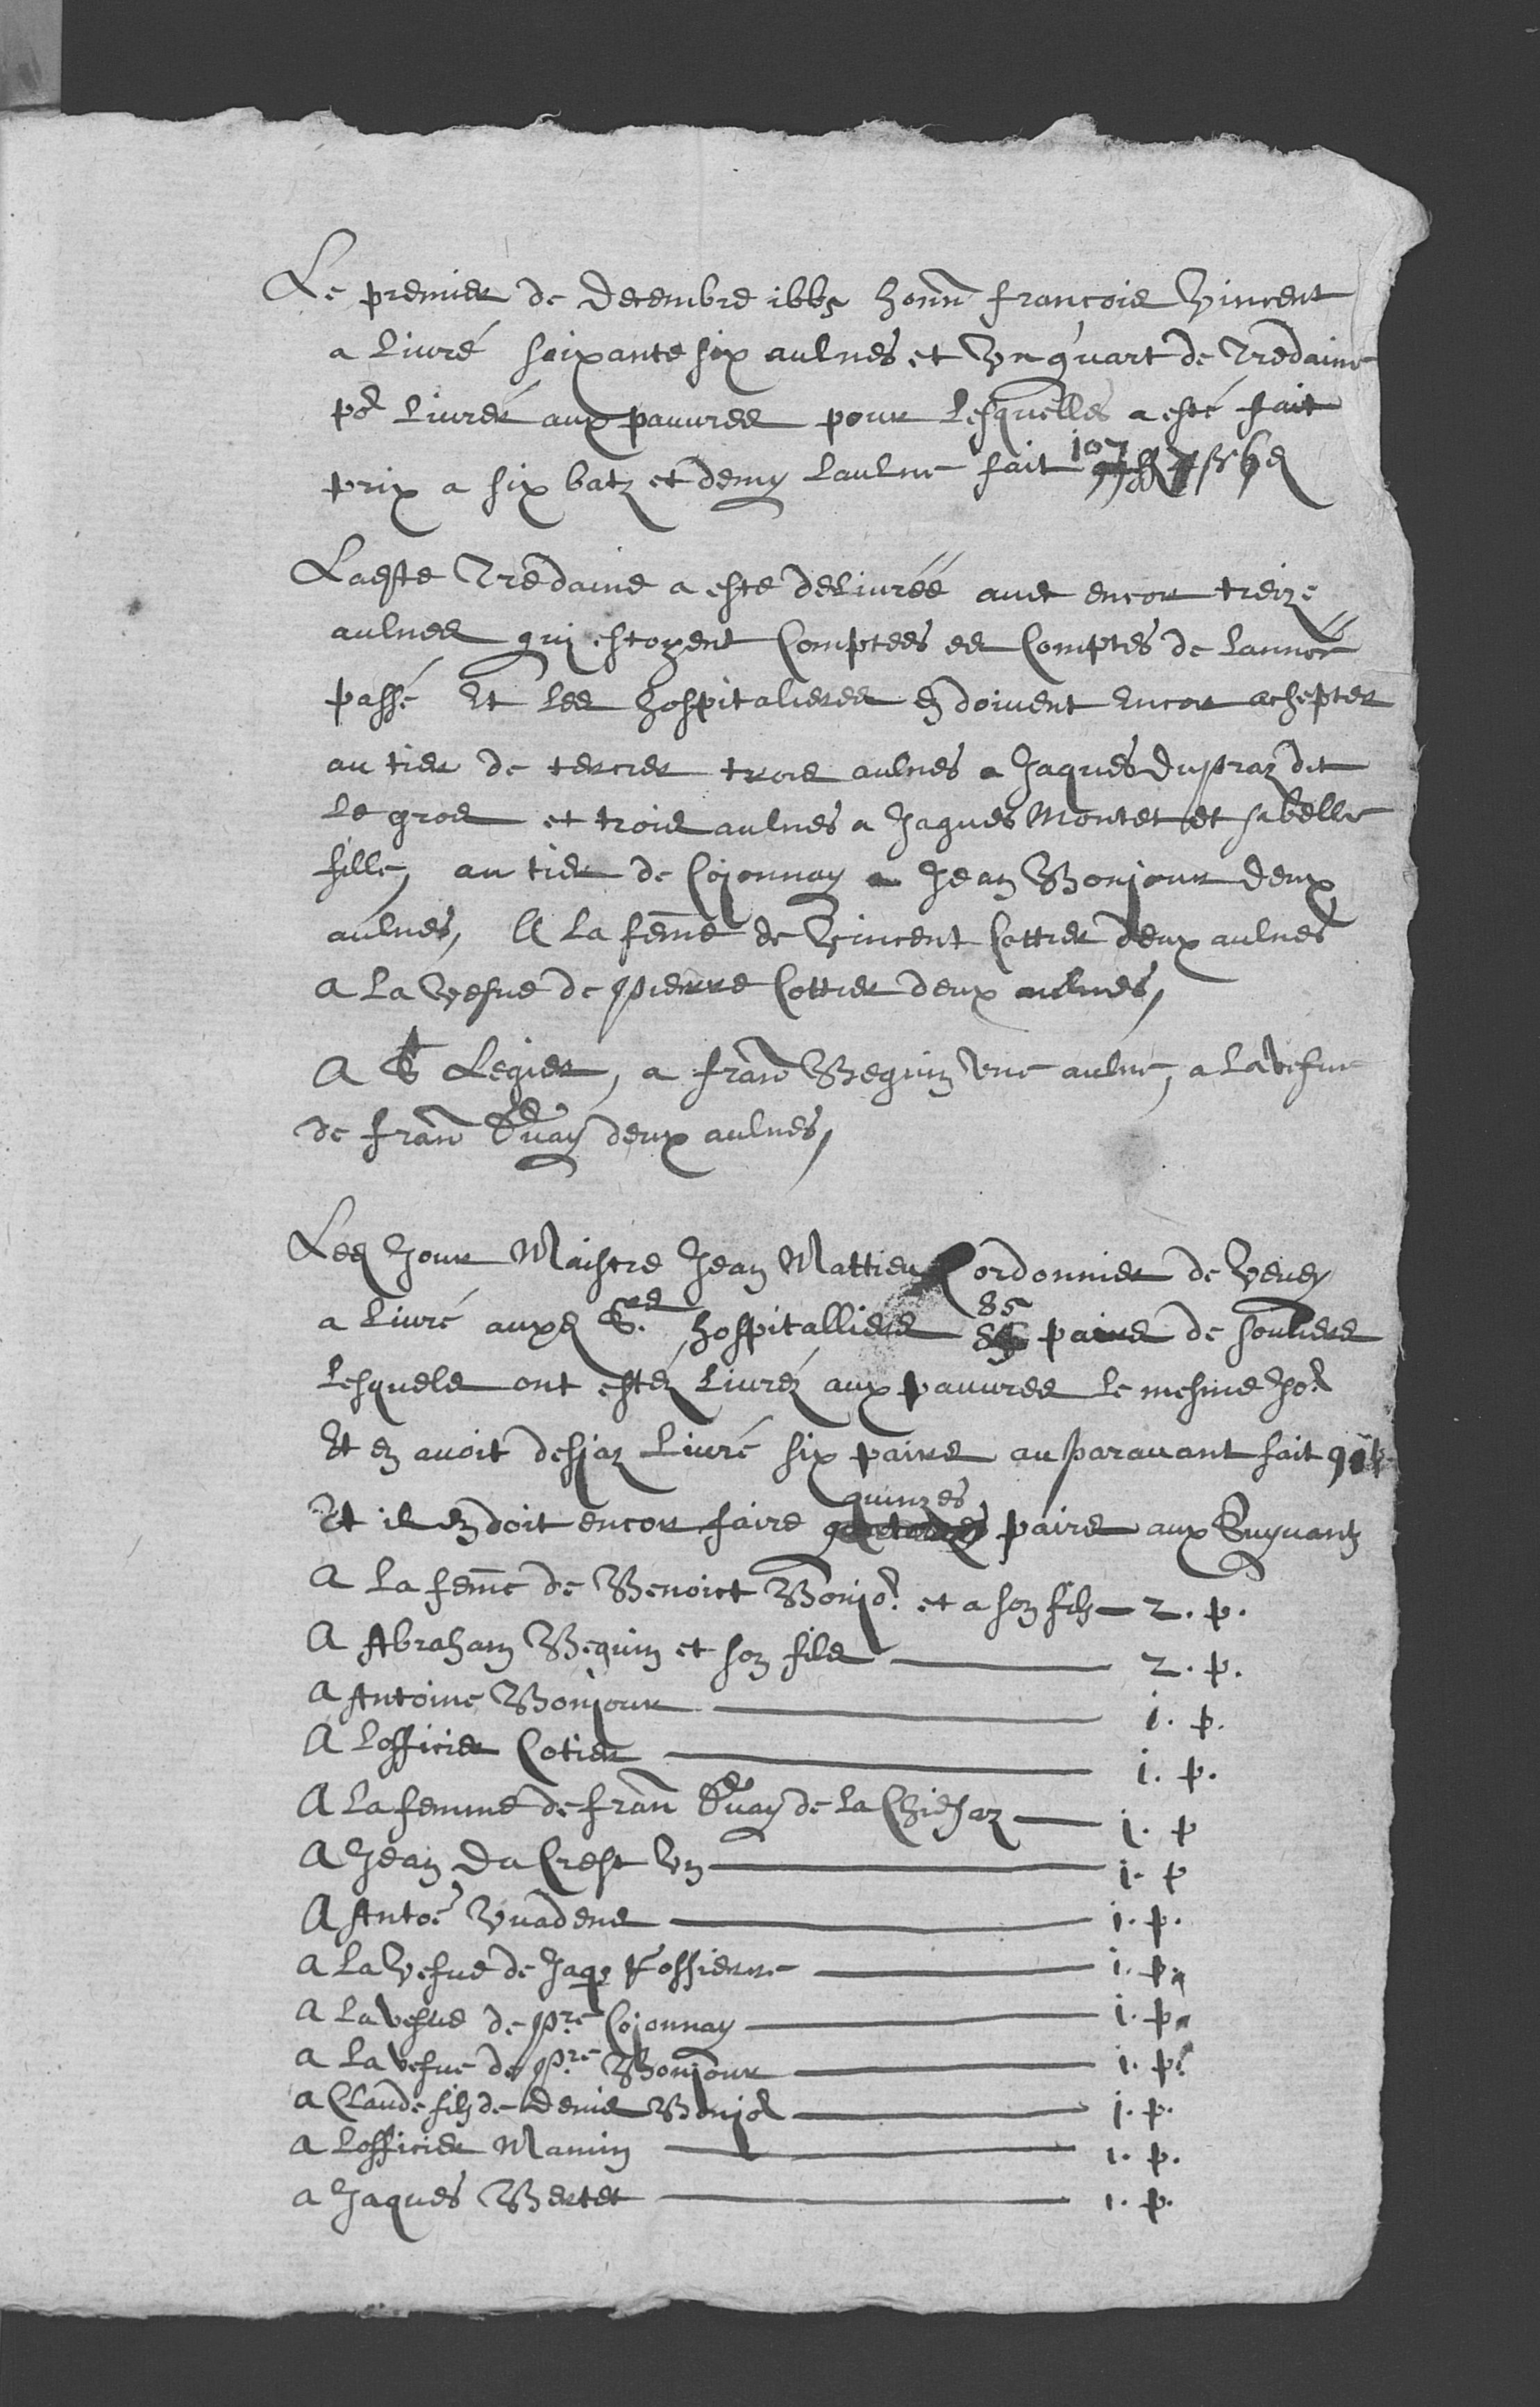 Le premier de Decembre 1665 honn François Vincent
a livré soixante six aulnes et Un quart de Tredaine
po.r livrer aux pauvres pour lesquelles a esté fait
prix a six batz et demy laulne fait 107
Laditte Tredaine a este delivréé avec encor treize
aulnes qui estoyent Comptees es Comptes de lannéé
passé Et les hospitaliers en doivent encor achepter
au tier de tercier trois aulnes a Jaques Dupraz dit
le gros et trois aulnes a Jaques Montet et sa belle
fille, au tier de Cojonnay a Jean Bonjour deux
aulnes, A la feme de Vincent Cottier deux aulnes
A la Vefue de Pierre Cottier deux aulnes,
A Legier, a Fran Beguin une aulne, a la vefue
de Fran deux aulnes,
Led Jour Maistre Jean Mattieu Cordonnier de Vevey
a livré auxd S.rs hospitalliers 85 paires de souliers
lesquels ont estéz livréz aux pauvres le mesme Jo.r
Et en avoit desjaz livré six paires auparavant fait 91 p
Et il en doit encor faire quinzes paires aux Suyvantz
A la feme de Benoict Bonjo.r et a son filz — 2. p.
A Abraham Beguin et son fils — 2. p.
A Antoine Bonjour — 1. p.
A Lofficier Cotier — 1. p.
A la femme de Fran de la Chiesaz — 1. p
A Jean Du Crest Un — 1. p
A Antoe Vuadens — 1. p.
A la Vefue de Jaq — 1. p.
A la vefue de P.re Cojonnay — 1. p.
A la vefue de P.re Bonjour — 1. p.
A Claude filz de Denis Bonjo.r — 1. p.
A Lofficier Mamin — 1. p.
A Jaques Bertet — 1. p.